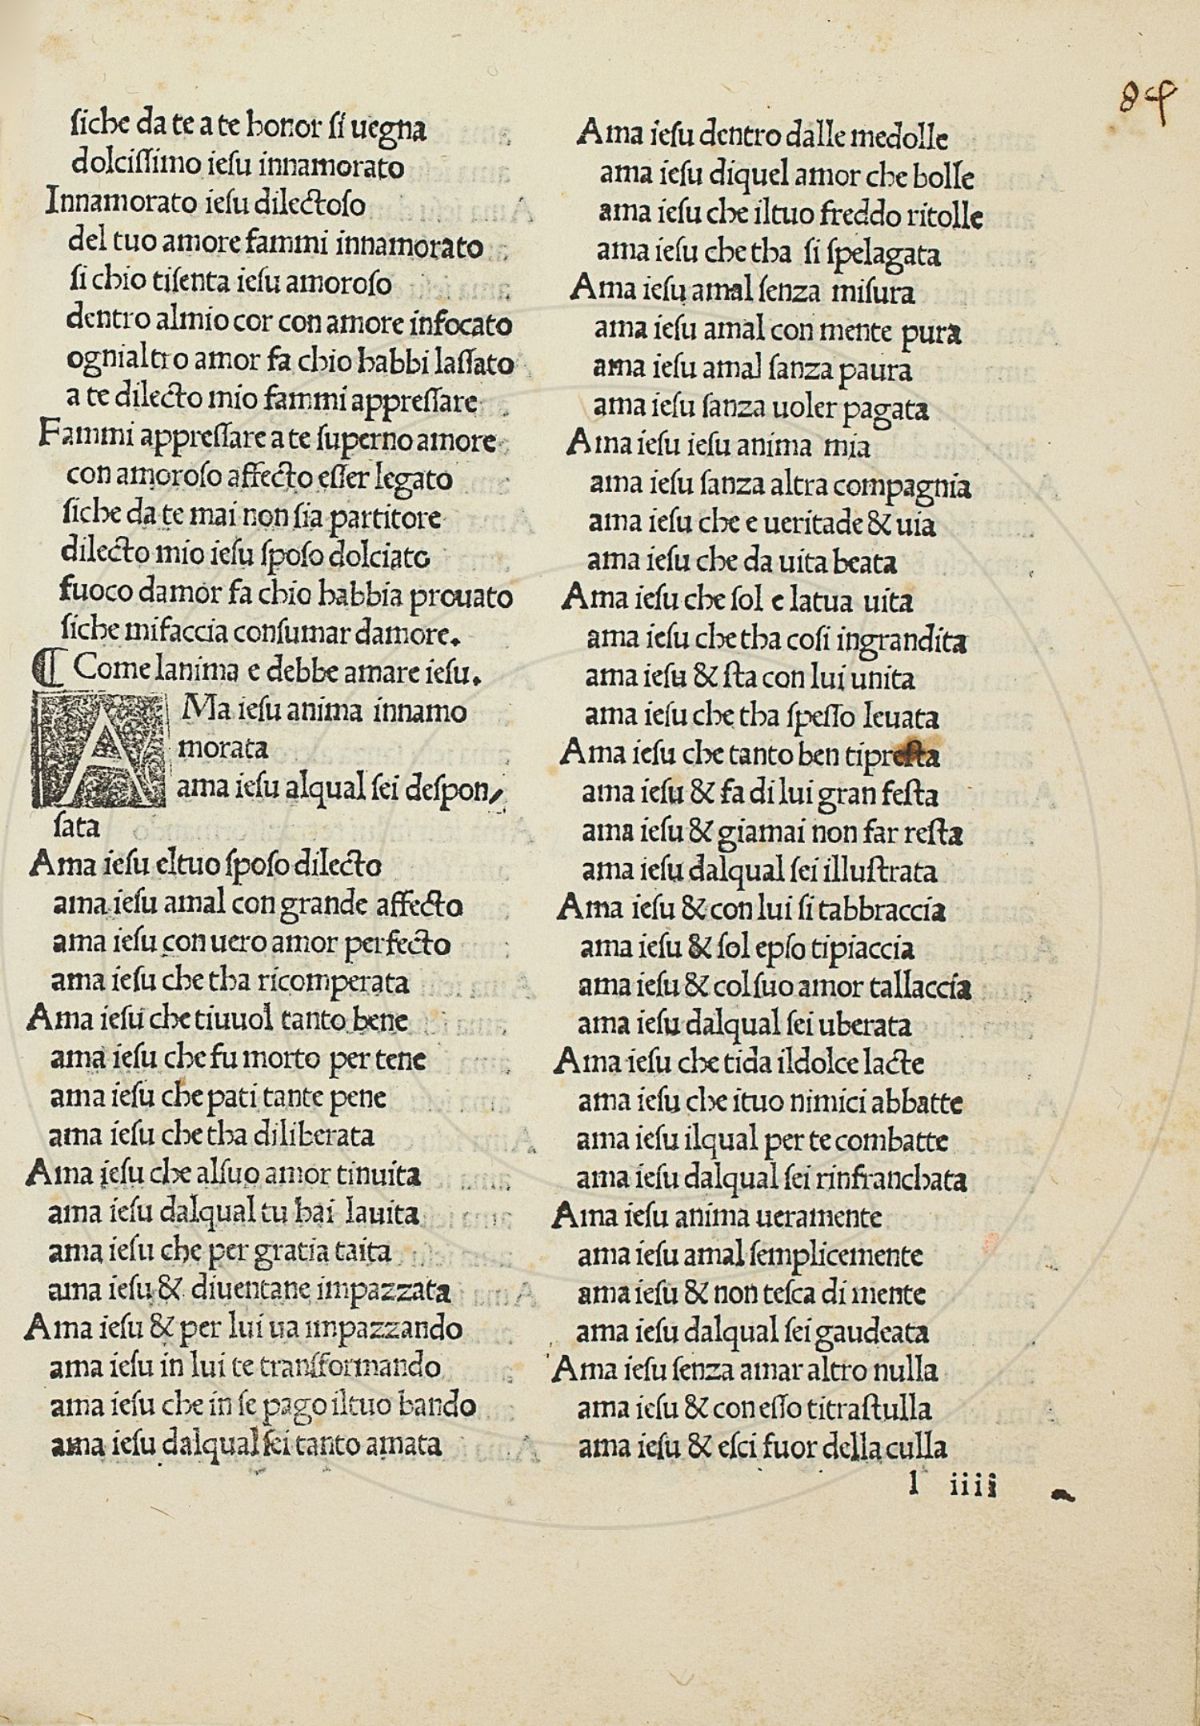 84
siche da te a te honor si uegna
dolcissimo iesu innamorato
Innamorato iesu dilectoso
del tuo amore fammi innamorato
si chio tisenta iesu amoroso
dentro almio cor con amore infocato
ognialtro amor fa chio habbi lassato
a te dilecto mio fammi appressare
Fammi appressare a te superno amore
con amoroso affecto esser legato
siche da te mai non sia partitore
dilecto mio iesu sposo dolciato
fuoco damor fa chio habbia prouato
siche mifaccia consumar damore.
¶ Come lanima e debbe amare iesu.
AMa iesu anima innamo
morata
ama iesu alqual sei despon/
sata
Ama iesu eltuo sposo dilecto
ama iesu amal con grande affecto
ama iesu con uero amor perfecto
ama iesu che tha ricomperata
Ama iesu che tiuuol tanto bene
ama iesu che fu morto per tene
ama iesu che pati tante pene
ama iesu che tha diliberata
Ama iesu che alsuo amor tinuita
ama iesu dalqual tu hai lauita
ama iesu che per gratia taita
ama iesu & diuentane impazzata
Ama iesu & per lui ua impazzando
ama iesu in lui te transformando
ama iesu che in se pago iltuo bando
ama iesu dalqual sei tanto amata
Ama iesu dentro dalle medolle
ama iesu diquel amor che bolle
ama iesu che iltuo freddo ritolle
ama iesu che tha si spelagata
Ama iesu amal senza misura
ama iesu amal con mente pura
ama iesu amal sanza paura
ama iesu sanza uoler pagata
Ama iesu iesu anima mia
ama iesu sanza altra compagnia
ama iesu che e ueritade & uia
ama iesu che da uita beata
Ama iesu che sol e latua uita
ama iesu che tha cosi ingrandita
ama iesu & sta con lui unita
ama iesu che tha spesso leuata
Ama iesu che tanto ben tipresta
ama iesu & fa di lui gran festa
ama iesu & giamai non far resta
ama iesu dalqual sei illustrata
Ama iesu & con lui si tabbraccia
ama iesu & sol epso tipiaccia
ama iesu & colsuo amor tallaccia
ama iesu dalqual sei uberata
Ama iesu che tida ildolce lacte
ama iesu che ituo nimici abbatte
ama iesu ilqual per te combatte
ama iesu dalqual sei rinfranchata
Ama iesu anima ueramente
ama iesu amal semplicemente
ama iesu & non tesca di mente
ama iesu dalqual sei gaudeata
Ama iesu senza amar altro nulla
ama iesu & con esso titrastulla
ama iesu & esci fuor della culla
l iiii